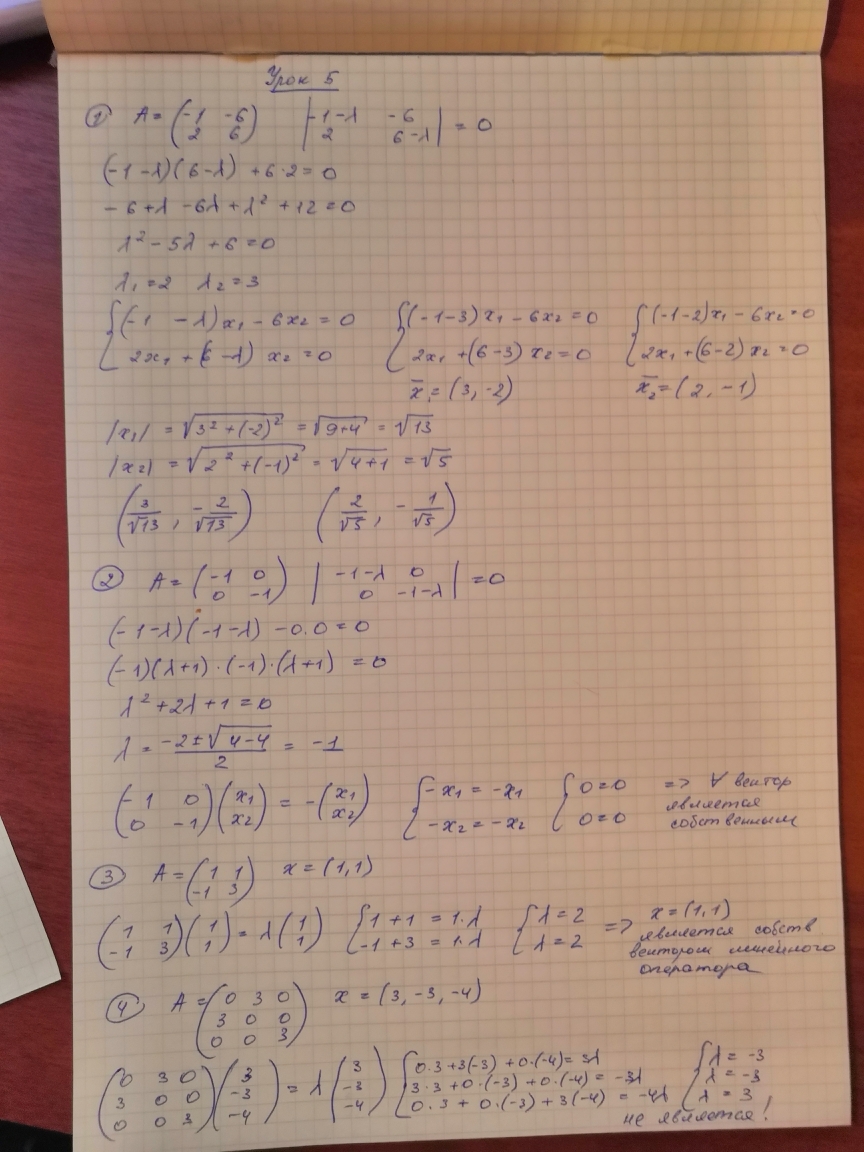 Урок 5
① A = (-1 -6; 2 6) |-1-λ -6; 2 6-λ| = 0
(-1-λ)(6-λ) + 6·2 = 0
-6+λ-6λ+λ²+12=0
λ²-5λ+6=0
λ₁=2 λ₂=3
{(-1 -λ)x₁ - 6x₂ = 0 {(-1-3)x₁ - 6x₂ = 0 {(-1-2)x₁ - 6x₂ = 0
2x₁ + (6-λ) x₂ = 0 2x₁ + (6-3) x₂ = 0 2x₁ + (6-2) x₂ = 0
x̄₁ = (3, -2) x̄₂ = (2, -1)
|x₁| = √(3²+(-2)²) = √(9+4) = √13
|x₂| = √(2²+(-1)²) = √(4+1) = √5
(3/√13, -2/√13) (2/√5, -1/√5)
② A = (-1 0; 0 -1) |-1-λ 0; 0 -1-λ| = 0
(-1-λ)(-1-λ) -0.0 = 0
(-1)(λ+1)·(-1)·(λ+1) = 0
λ²+2λ+1=0
λ = (-2±√(4-4))/2 = -1
(-1 0; 0 -1)(x₁; x₂) = -(x₁; x₂) {-x₁ = -x₁; -x₂ = -x₂ {0=0; 0=0 => ∀ вектор
является
собственным
③ A = (1 1; -1 3) x = (1,1)
(1 1; -1 3)(1; 1) = λ(1; 1) {1+1 = 1·λ; -1+3 = 1·λ {λ=2; λ=2 => x = (1,1)
является собств
вектором линейного
оператора
④ A = (0 3 0; 3 0 0; 0 0 3) x = (3, -3, -4)
(0 3 0; 3 0 0; 0 0 3)(3; -3; -4) = λ(3; -3; -4) {0·3+3(-3)+0·(-4)=3λ; 3·3+0·(-3)+0·(-4) = -3λ; 0·3+0·(-3)+3(-4) = -4λ {λ = -3; λ = -3; λ = 3
не является!